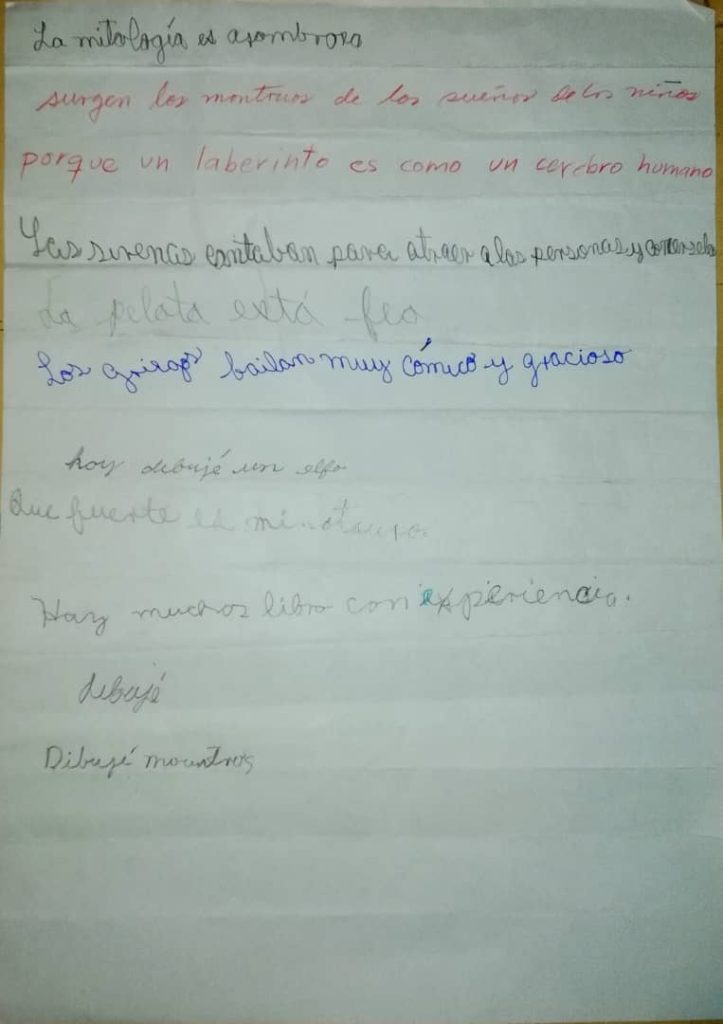 La mitología es asombrosa
surgen los montruos de los sueños de los niños
porque un laberinto es como un cerebro humano
Las sirenas cantaban para atraer a las personas y comerselas
La pelota está fea
Los griegos bailan muy cómico y gracioso
hoy dibujé un elfo
Que fuerte es minotauro.
Hay muchos libro con experiencia.
dibujé
Dibujé mountros